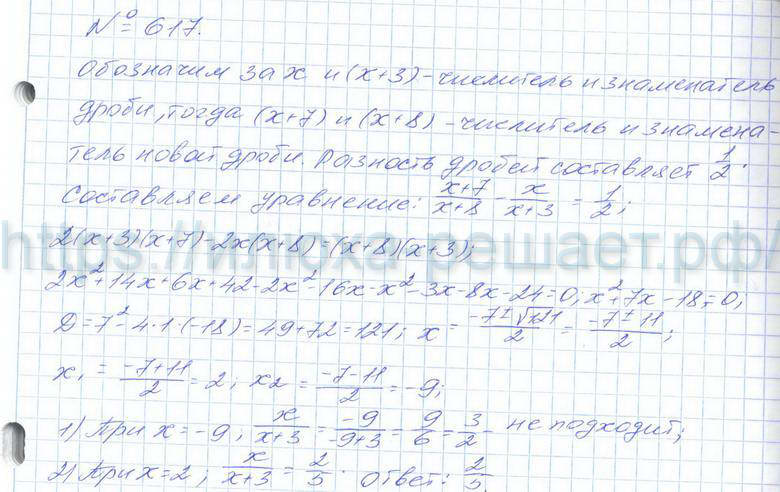 № 617.
Обозначим за x и (x+3) - числитель и знаменатель
дроби, тогда (x+7) и (x+8) - числитель и знамена-
тель новой дроби. Разность дробей составляет 1/2.
Составляем уравнение: (x+7)/(x+8) - x/(x+3) = 1/2;
2(x+3)(x+7)-2x(x+8)=(x+8)(x+3);
https://илюха-решает.рф/
2x²+14x+6x+42-2x²-16x-x²-3x-8x-24=0; x²+7x-18=0;
D=7²-4·1·(-18)=49+72=121; x = (-7±√121)/2 = (-7±11)/2;
x₁ = (-7+11)/2 = 2; x₂ = (-7-11)/2 = -9;
1) При x=-9, x/(x+3) = -9/(-9+3) = 9/6 = 3/2 не подходит;
2) При x=2; x/(x+3) = 2/5. Ответ: 2/5.